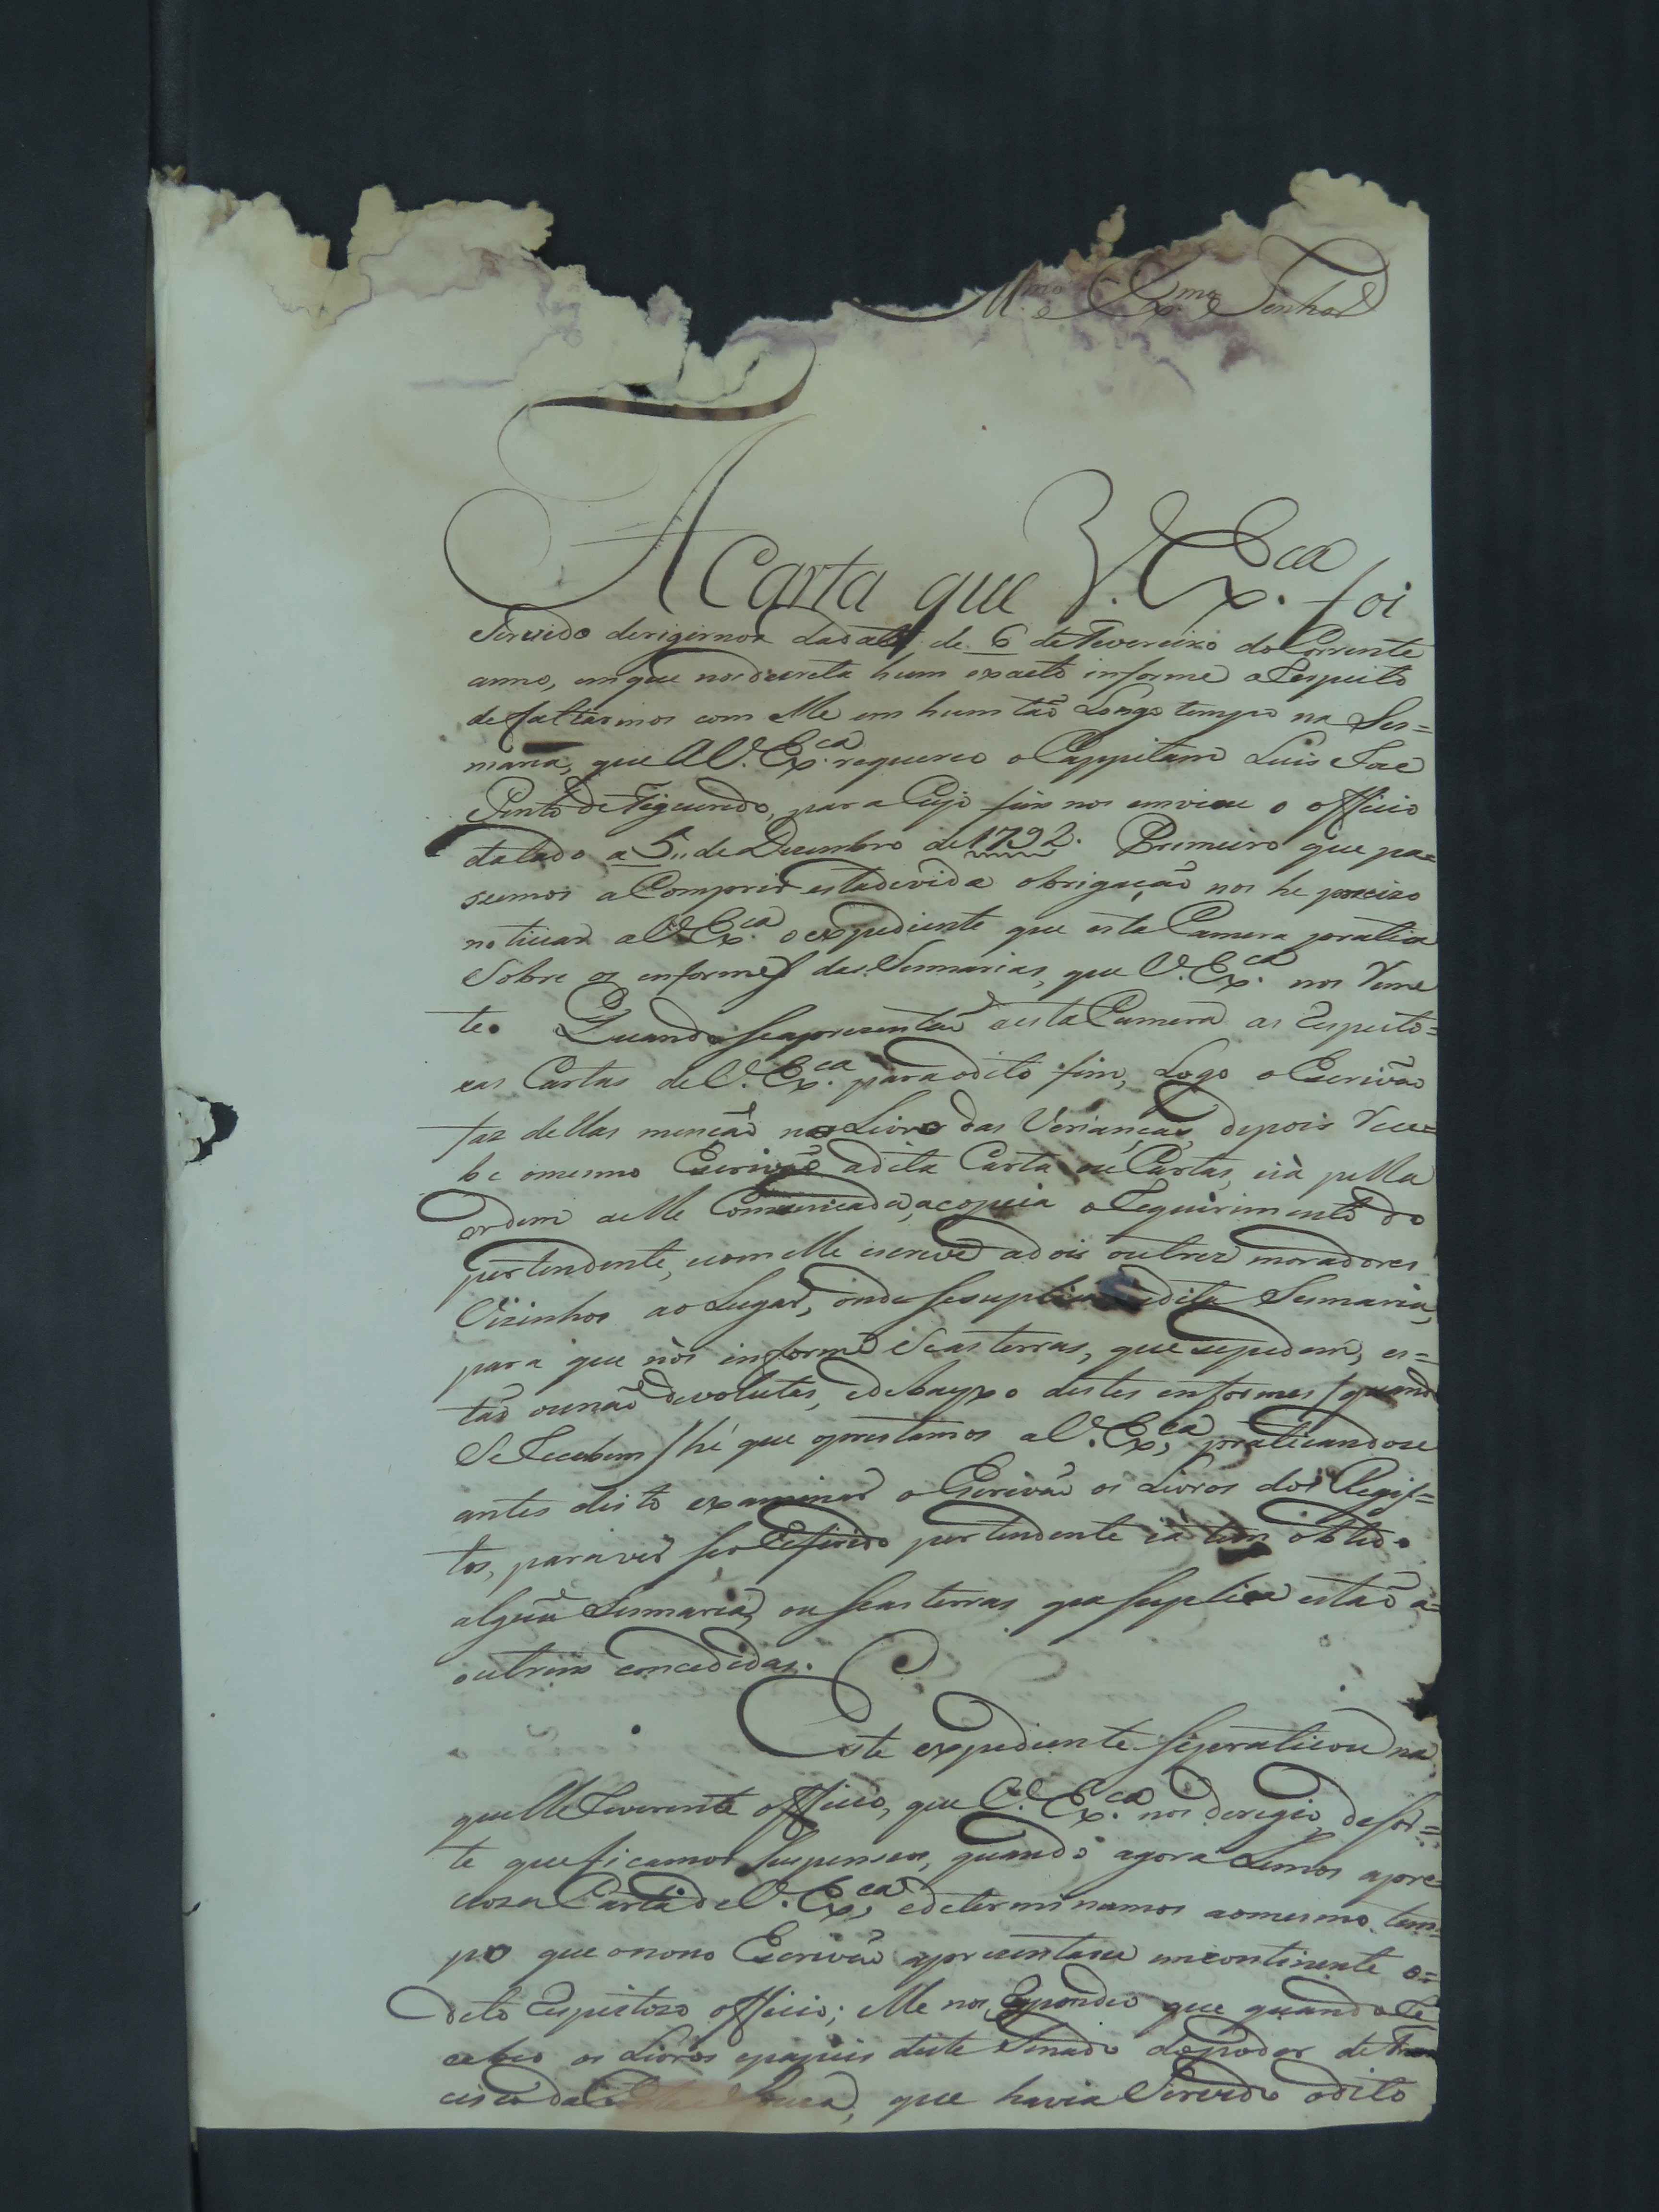 Ill.mo e Ex.mo Senhor
A Carta que V. Ex.ca foi
Servido derigirnos dactada de 6 de Fevereiro do Corrente
anno, em que nos decreta hum exacto informe a Respeito
de faltarmos com elle em hum tão Longo tempo na Ses=
maria, que a V. Ex.ca requereo o Cappitam Luis Joze
Pinto de Figueredo, para Cujo fim nos enviou o officio
datado a 5,, de Dezembro de 1792. Primeiro que pa=
semos a Comprir esta devida obrigação nos he precizo
noticiar a V. Ex.ca o expediente que esta Camera pratica
Sobre os informes das Sesmarias, que V. Ex.ca nos Reme
te. Quando se aprezentão a esta Camera as Respeito=
zas Cartas de V. Ex.ca para o dito fim, Logo o Escrivão
faz dellas menção no Livro das Verianças, depois Rece=
be o mesmo Escrivão a dita Carta ou Cartas, e já pella
ordem a elle Comunicada, acopeia o Requirimento do
pertendente, e com elle escreve a dois outres moradores
Vizinhos ao Lugar, onde se suplica a dita Sesmaria,
para que nòs informe se as terras, que se pedem, es=
tão ou não devolutas, e debaypo destes informes / quando
Se Recebem / hé que oprestamos a V. Ex.ca, praticandose
antes disto examinar o Escrivão os Livros dos Regis=
tos, para ver se o Referido pertendente ja tem obtido
algũa Sesmaria, ou se as terras que suplica estão a=
outrem concedidas.
Este expediente se praticou na
quelle Reverente officio, que V. Ex.ca nos deregio, de sor=
te que ficamos Suspensos, quando agora Lemos apre
cioza Carta de V. Ex.ca, e determinamos ao mesmo tem=
po que o novo Escrivão aprezentase incontinente o=
dito Respeitozo officio; elle nos Respondeo que quando Re
cebeo os Livros e papeis deste Senado do poder de Fran
cisco da Costa e Souza, que havia Servido o dito